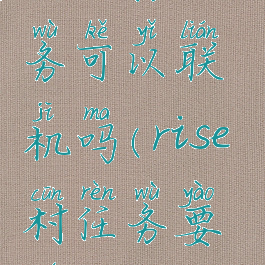 wù kě yǐ lián
务可以联
jī ma
机吗(rise
cūn rèn wù yào
村任务要